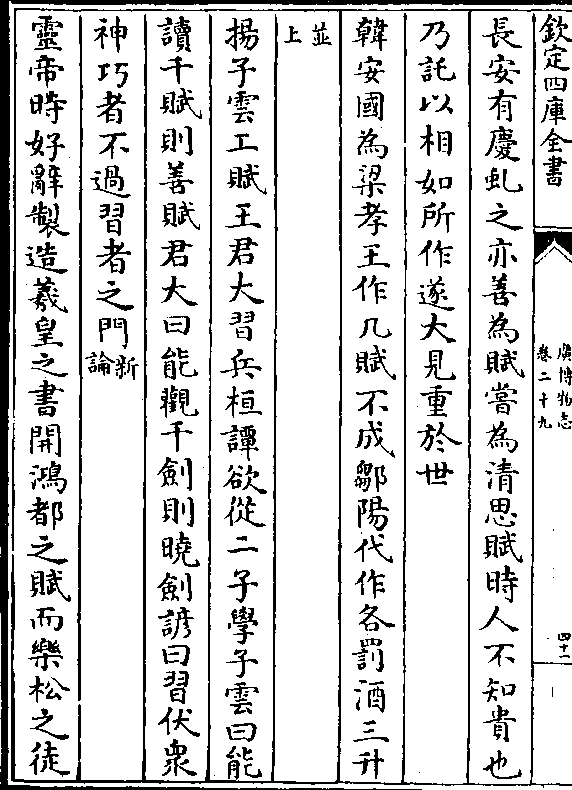 欽定四庫全書
廣博物志
卷二十九
四十二
長安有慶虬之亦善為賦嘗為清思賦時人不知貴也
乃託以相如所作遂大見重於世
韓安國為梁孝王作几賦不成鄒陽代作各罰酒三升
並
上
揚子雲工賦王君大習兵桓譚欲從二子學子雲曰能
讀千賦則善賦君大曰能觀千劍則曉劍諺曰習伏衆
神巧者不過習者之門新
論
靈帝時好辭製造羲皇之書開鴻都之賦而樂松之徒